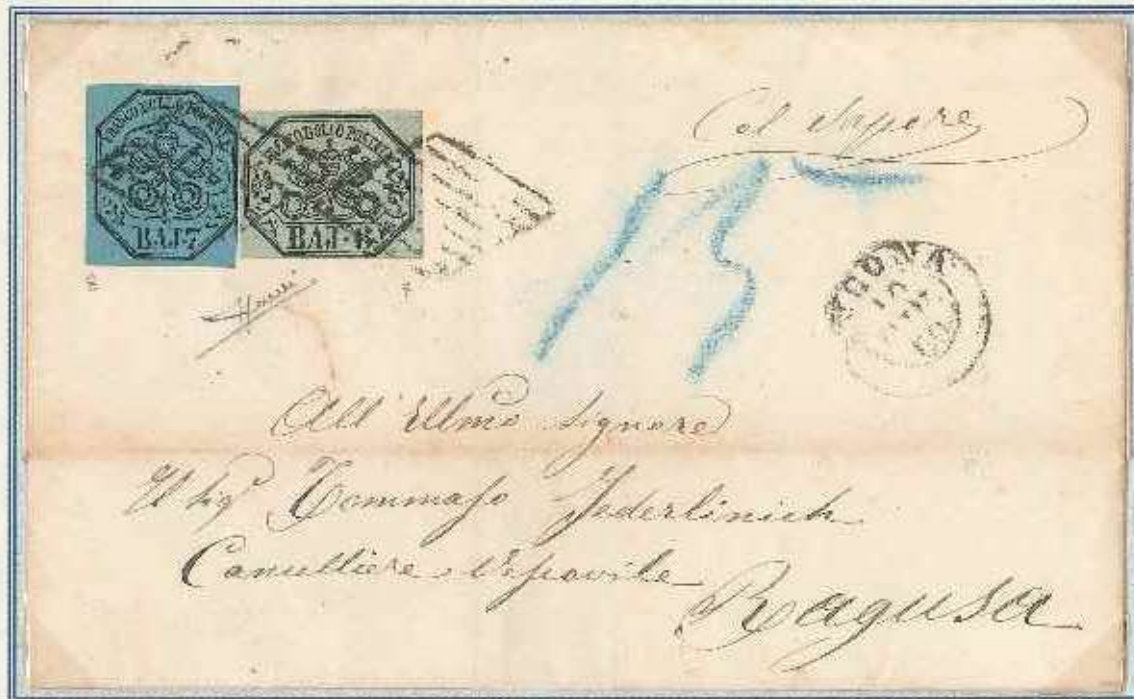 FRANCO BOLLO POSTALE
BAJ·7
FRANCO BOLLO POSTALE
BAJ·
Col Vapore
15
ANCONA
60
All' Illmo Signore
Il Sigr Tommaso Jederlinich
Cancelliere Vescovile
Ragusa